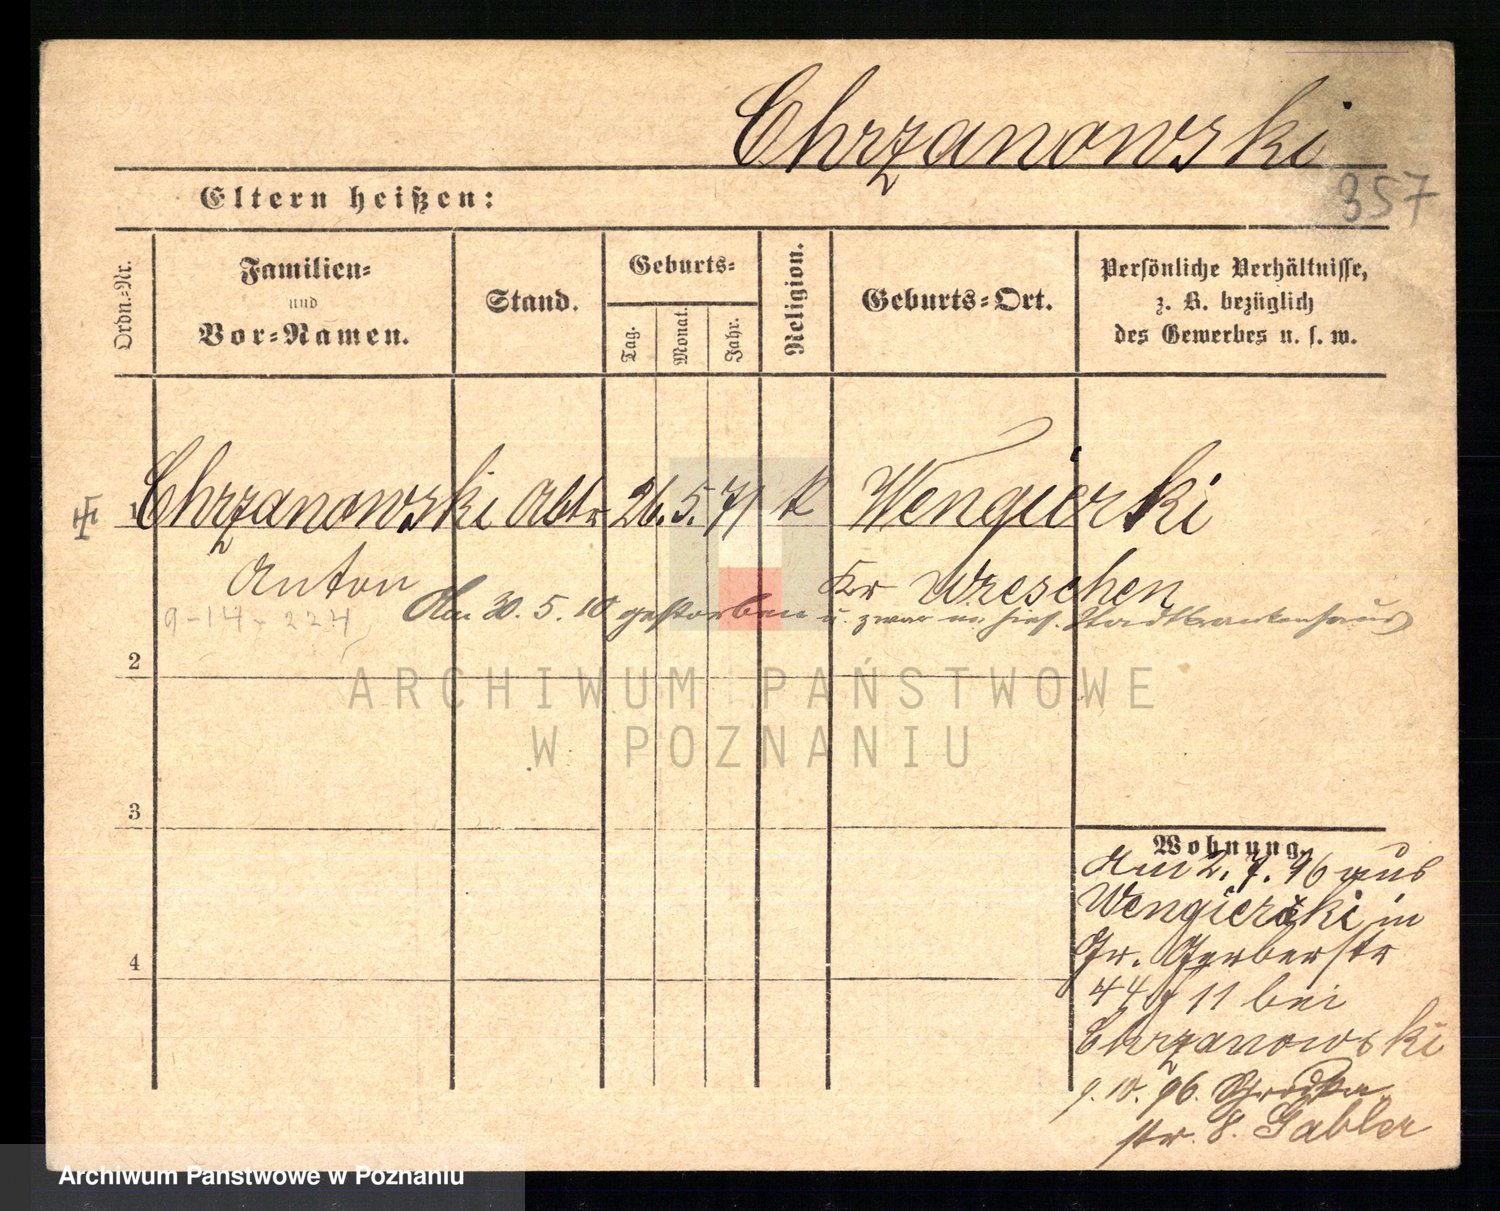 Chrzanowski
357
Eltern heißen:
Ordn.-Nr.
Familien-
und
Vor-Namen.
Stand.
Geburts-
Tag.
Monat.
Jahr.
Religion.
Geburts-Ort.
Persönliche Verhältnisse,
z. B. bezüglich
des Gewerbes u. s. w.
1 Chrzanowski Abtr 26. 5. 71 k Wengierki
Anton Kr Wreschen
9-14-224
Am 30. 5. 10 gestorben u. zwar im hies. Stadtkrankenhaus
2
ARCHIWUM PAŃSTWOWE
W POZNANIU
3
Wohnung.
Am 2. 7. 96 aus
Wengierski in
Gr. Gerberstr
44 11 bei
Chrzanowski
4
9. 10. 96. Schrodka
str. 8. Gabler
Archiwum Państwowe w Poznaniu